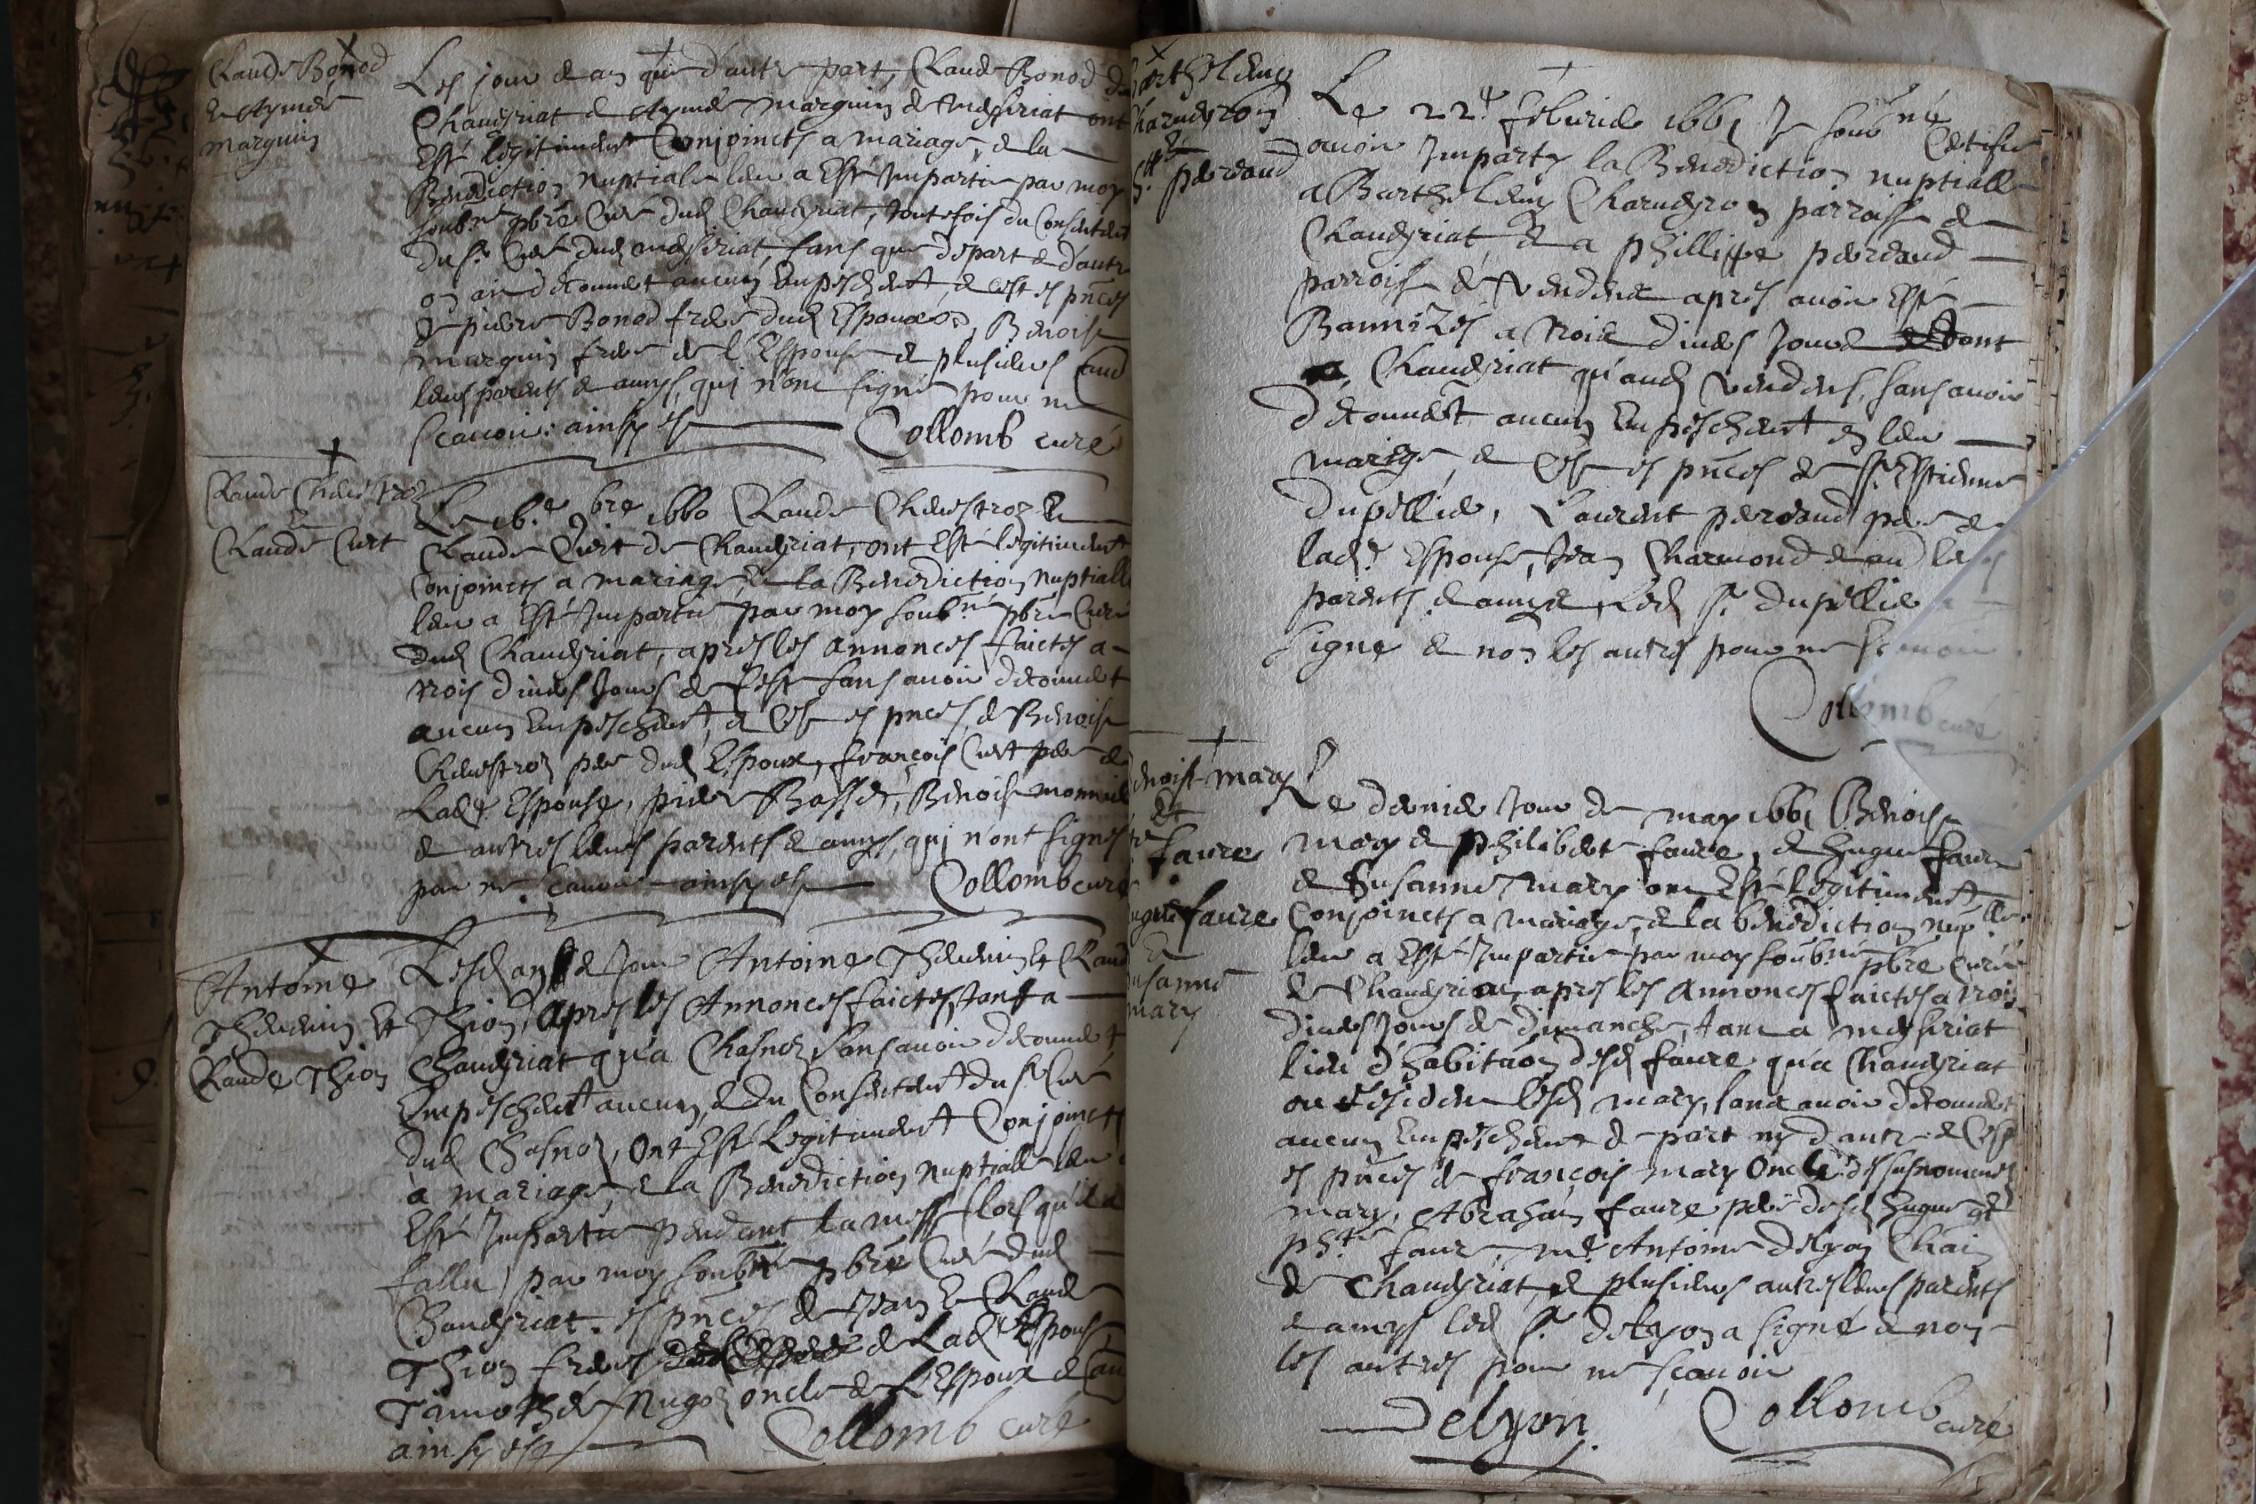 Claude Bonod
et Aymée
Marguin
Les jour et an que d'autre part, Claude Bonod de
Chaveyriat et Aymée Marguin de Meseriat ont
esté legitimemt Conjoincts a mariage, et la
Benediction nuptiale leur a esté Impartie par moy
soubné pbre Curé dud Chaveyriat, toutefois du Consentemt
du sr Curé dud Meseriat, sans que de part et d'autre
on aie decouvert aucun Empeschemt, et cest es pnces
de pierre Bonod frere dud Espoux, Benoist
Marguin frere de l'Espouse et plusieurs
leurs parents et amys, qui n'ont signé pour ne
scavoir. ainsy est Collomb curé
Claude Chevestroz
Et
Claude Curt
Le 16e bre 1660 Claude Chevestroz Et
Claude Curt de Chaveyriat, ont esté legitimemt
Conjoincts a mariage, et la Benediction nuptialle
leur a esté Impartie par moy soubné pbre Curé
dud Chaveyriat, apres les annonces faictes a
trois divers Jours de feste sans avoir decouvert
aucun Empeschemt, et Cest es pnces de Benoist
Chevestroz pere dud Espoux, françois Curt pere de
Lade Espouse, pierre Basset, Benoist monnier
et autres leurs parents et amys, qui n'ont signés
pour ne scavoir ainsy est Collomb curé
Antoine
Thevenin Et
Claude Thion
Lesd an et Jour Antoine Thevenin Et Claude
Thion, apres les Annonces faictes, tant a
Chaveyriat qu'a Chasnoz sans avoir decouvert
Empeschemt aucun, et du Consentemt du sr Curé
dud Chasnoz, ont esté legitimemt Conjoincts
a mariage, et la Benediction nuptialle leur a
esté Impartie pendant la messe (lors qu'il a
fallu) par moy soubné pbre Curé dud
Chaveyriat. es pnces de Jean Et Claude
Thion freres de Lade Espouse,
Timothée Nugoz oncle de L'Espoux et
ainsy est Collomb curé
Barthelemy
Charveyron
Et
perraud
Le 22e febvrier 1661 Je soubné Certifie
avoir Imparty la Benediction nuptialle
a Barthelemy Charveyron parroisse de
Chaveyriat et a phillippe perraud
parroisse de Vendens apres avoir esté
Bannizés a trois divers Jours tant
a Chaveyriat qu'aud Vendens, sans avoir
decouvert aucun Empeschemt en leur
mariage, et Cest es pnces de sr Estienne
Dupellier, Laurent perraud pere de
lade Espouse, Jean Charmond et
parents et amys, Led sr Dupellier
signé et non les autres pour ne scavoir
Collomb curé
Benoist mary
Et
faure
hugue faure
Et
Susanne
mary
Le dernier Jour de may 1661 Benoist
mary et philiberte faure, et hugue faure
et Susanne mary ont esté legitimemt
Conjoincts a mariage, et la benediction nuplle
leur a esté Impartie par moy soubné pbre Curé
de Chaveyriat, apres les annonces faictes a trois
divers Jours de dimanche, tant a Meseriat
lieu d'habitaon desd faure qu'a Chaveyriat
ou resident lesd mary, sans avoir decouvert
aucun Empeschemt de part ny d'autre et Cest
es pnces de françois mary Oncle des susnommés
mary, Abraham faure pere desd hugue et
phte faure, me Antoine delyon
de Chaveyriat, et plusieurs autres leurs parents
et amys led sr delyon a signé et non
les autres pour ne scavoir
Delyon. Collomb curé